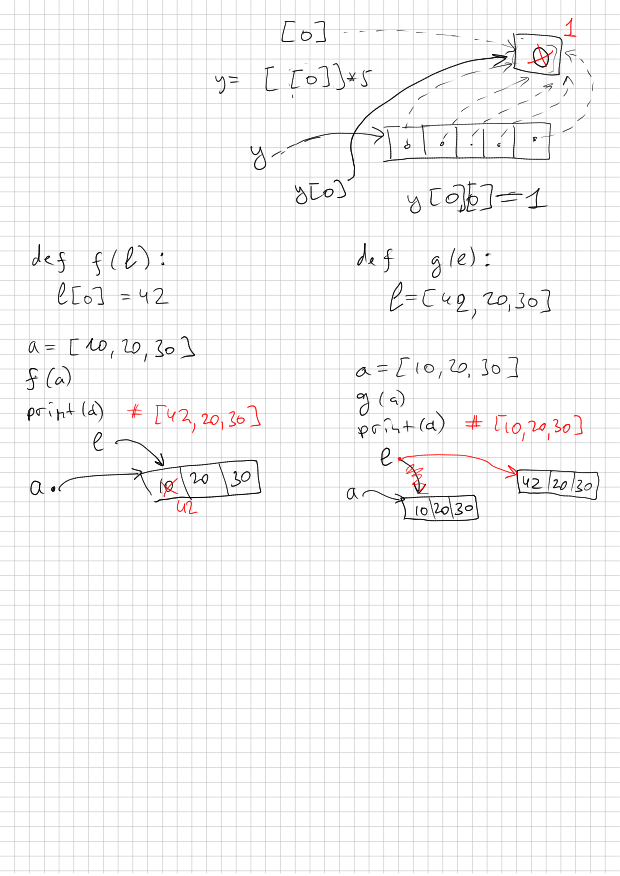 [0]
1
y= [ [0]]*5
0
y
0 0 . 0 0
y[0]
y[0][0]=1
def f(l):
l[0] = 42
a = [10, 20, 30]
f(a)
print(a) # [42, 20, 30]
l
a
10 20 30
42
def g(l):
l=[42, 20, 30]
a = [10, 20, 30]
g(a)
print(a) # [10, 20, 30]
l
42 20 30
a
10 20 30